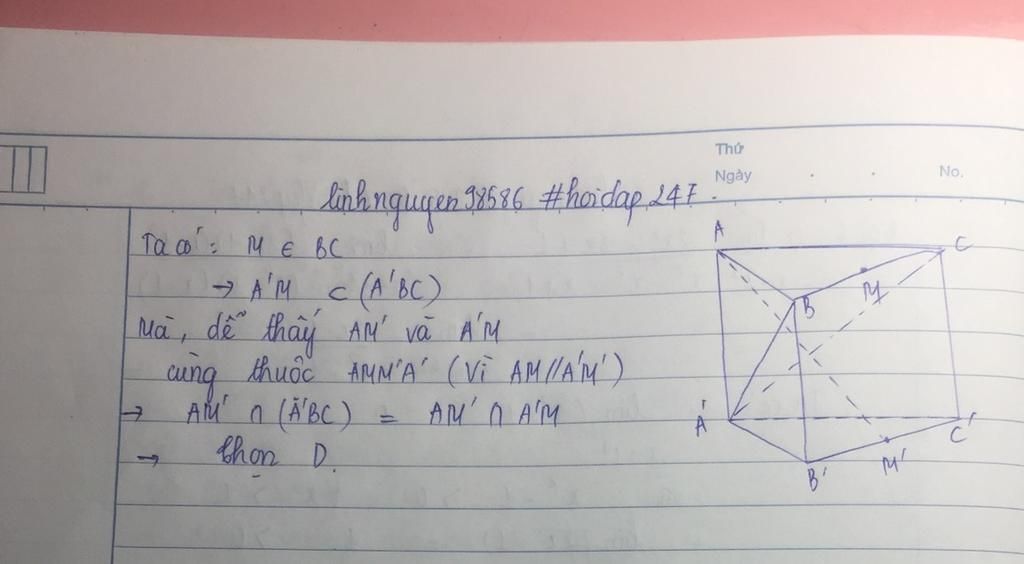 Thứ
Ngày
No.
linhnguyen98586 #hoidap247.
Ta có: M ∈ BC
→ A'M ⊂ (A'BC)
Mà, dễ thấy AM' và A'M
cùng thuộc AMM'A' (vì AM//A'M')
→ AM' ∩ (A'BC) = AM' ∩ A'M
→ Chọn D.
A
C
B
M
A'
C'
M'
B'